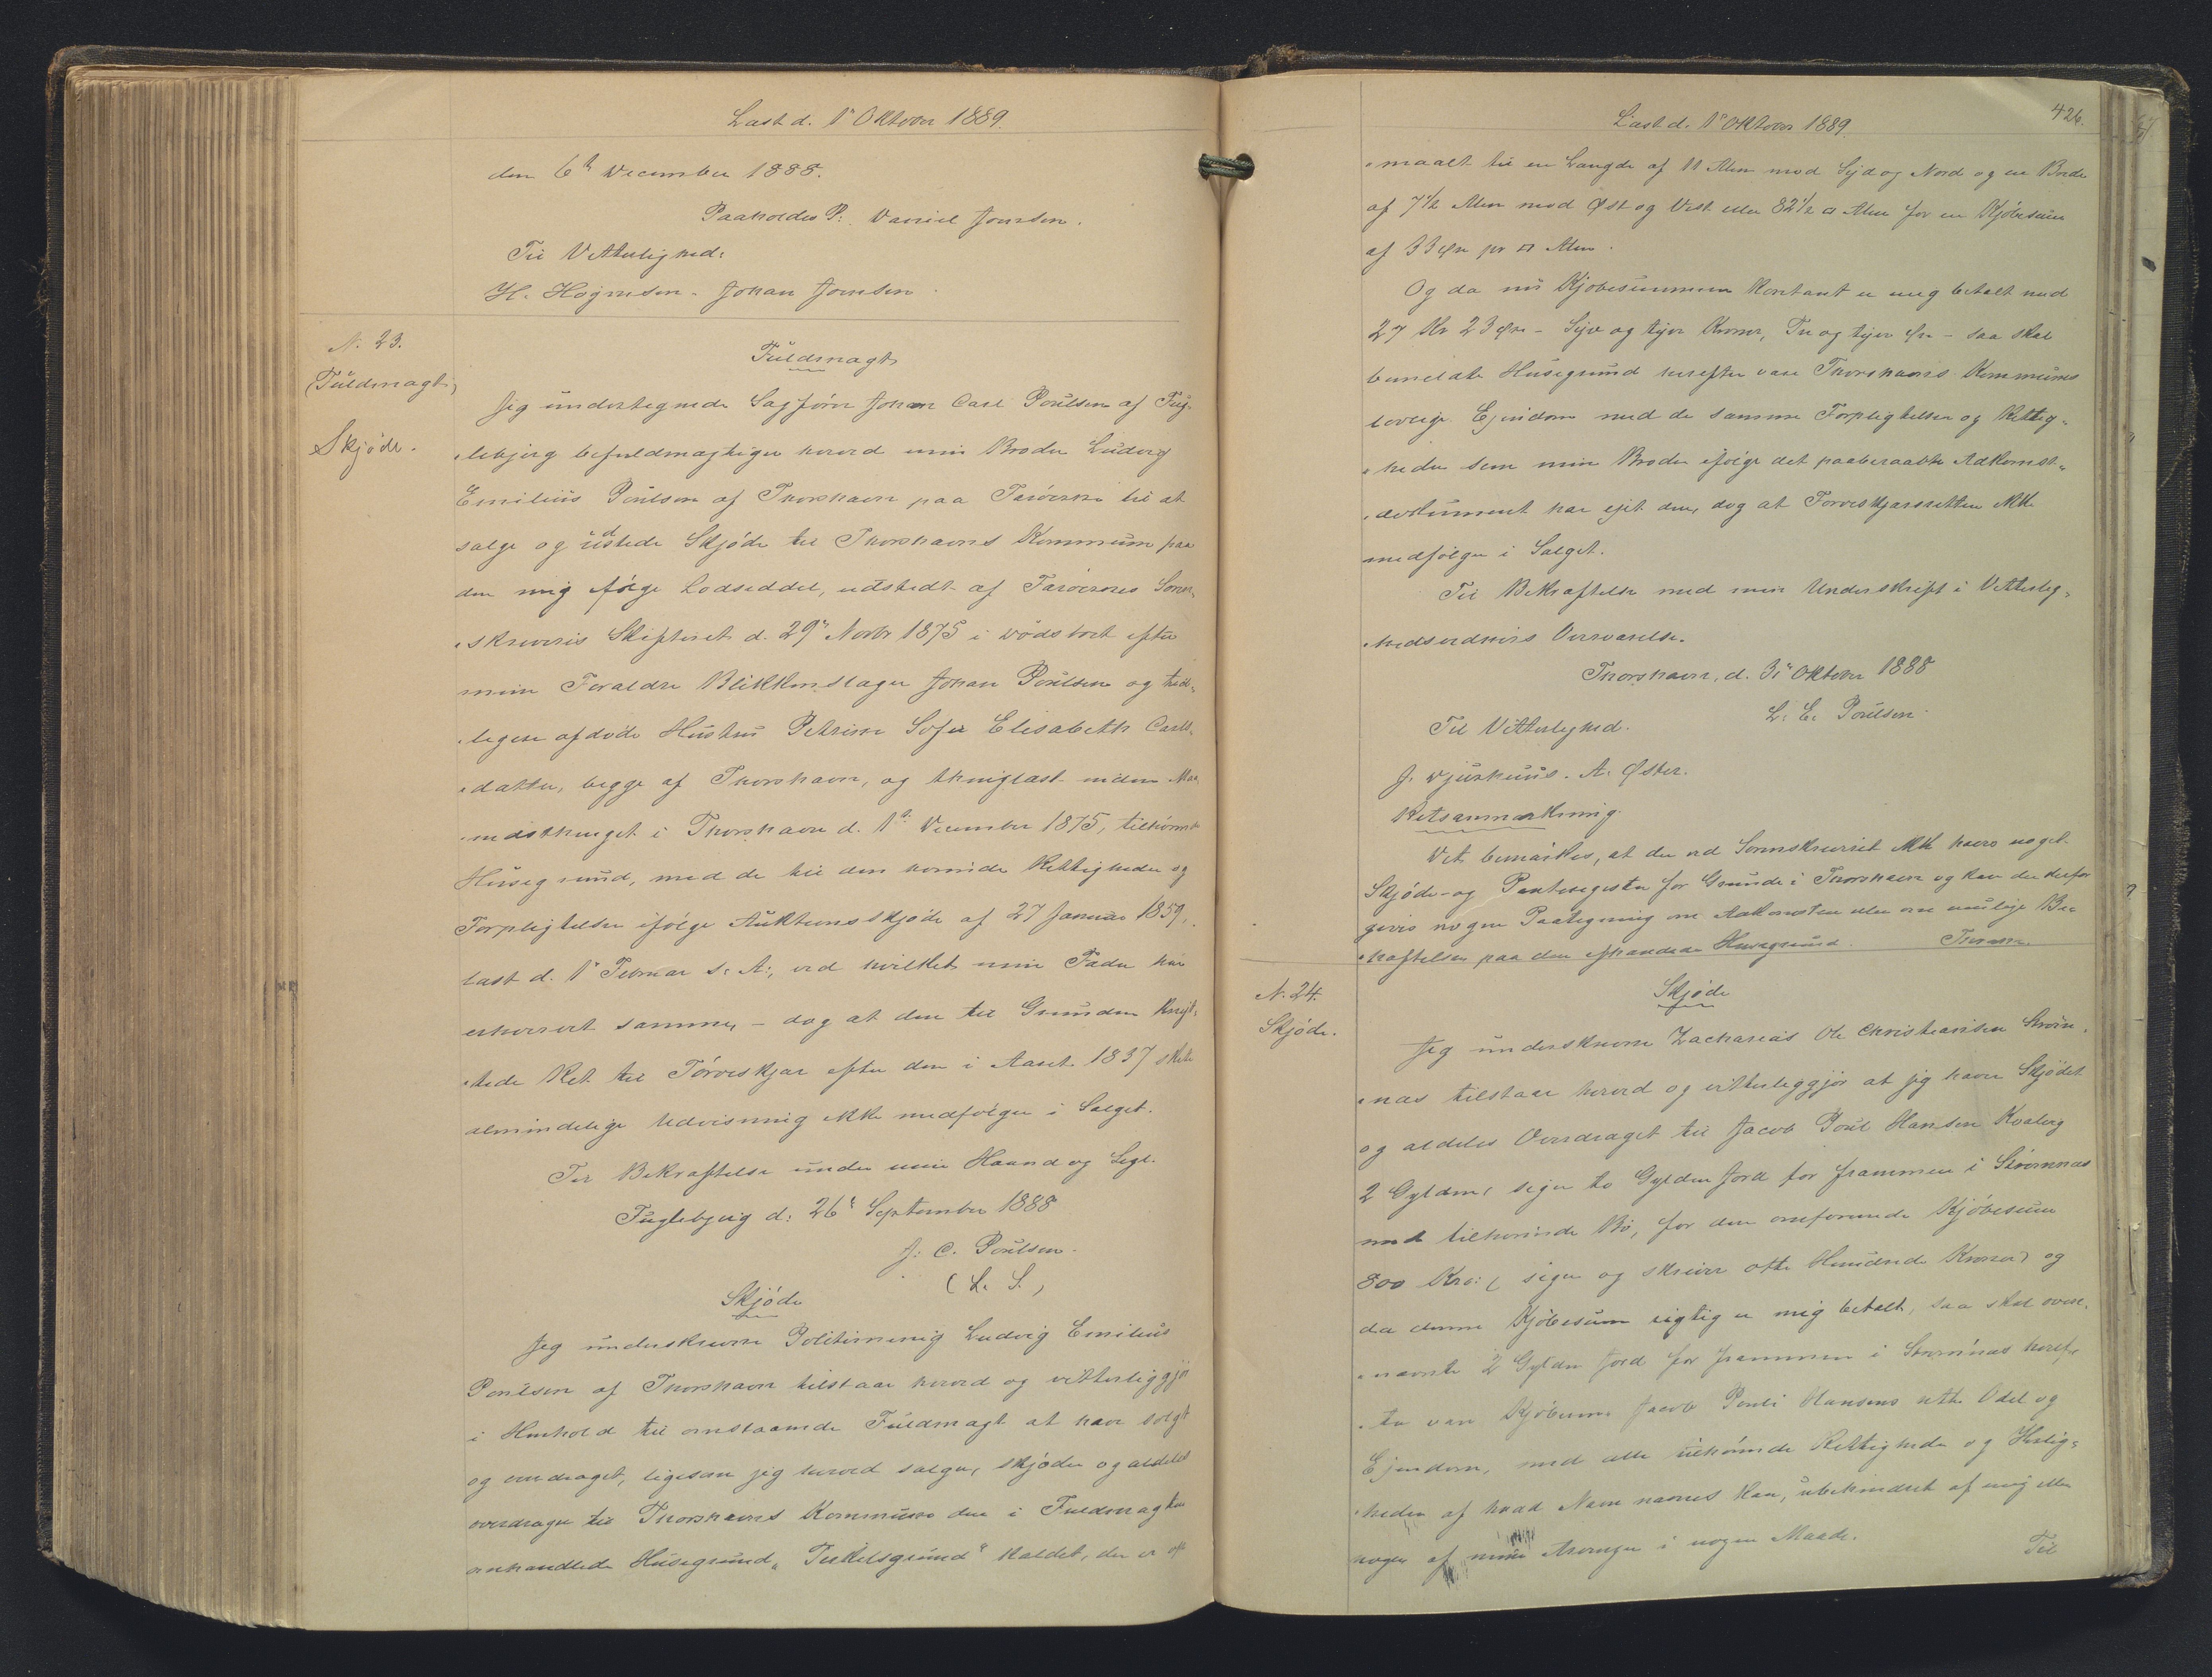 Læst d. 1ᵗᵉ Oktober 1889.
den 6ᵗᵉ December 1888.
Paaholdes P: Daniel Joensen.
Til Vitterlighed:
H. Højgaard. Johan Joensen.
N. 23.
(Fuldmagt)
Skjøde.
Fuldmagt
Jeg undertegnede Sagfører Johan Carl Poulsen af Fug-
lebjerg befuldmægtiger herved min Broder Ludvig
Emilius Poulsen af Thorshavn paa Færøerne til at
sælge og udstede Skjøde til Thorshavns Kommune paa
den mig ifølge Lodseddel, udstedt af Færøernes Soren-
skriveris Skifteret d. 29ᵈᵉ Novbr 1875 i Dødsboet efter
mine Forældre Blikkenslager Johan Poulsen og tid-
ligere afdøde Hustru Petrine Sofie Elisabeth Carls-
datter, begge af Thorshavn, og thinglæst inden Maa-
nedsthinget i Thorshavn d. 1ᵗᵉ December 1875, tilhørende
Husegrund, med de til den hørende Rettigheder og
Forpligtelser ifølge Auktionsskjøde af 27 Januar 1859,
læst d. 1ᵗᵉ Februar s. A., ved hvilket min Fader har
erhvervet samme, - dog at den til Grunden knyt-
tede Ret til Tørveskjær efter den i Aaret 1837 skete
almindelige Udvisning ikke medfølger i Salget.
Til Bekræftelse under min Haand og Segl.
Fuglebjerg d: 26ᵗᵉ September 1888
J: C. Poulsen.
(L. S.)
Skjøde
Jeg underskrevne Politibetjent Ludvig Emilius
Poulsen af Thorshavn tilstaar herved og vitterliggjør
i Henhold til ovenstaaende Fuldmagt at have solgt
og overdraget, ligesom jeg herved sælger, skjøder og aldeles
overdrager til Thorshavns Kommune den i Fuldmagten
omhandlede Husegrund "Terkelsgrund" kaldet, der er op-
Læst d. 1ᵗᵉ Oktober 1889.
426.
maalt til en Længde af 11 Alen mod Syd og Nord og en Brede
af 7½ Alen mod Øst og Vest eller 82½ □ Alen for en Kjøbesum
af 33 Øre pr □ Alen.
Og da nu Kjøbesummen kontant er mig betalt med
27 Kr 23 Øre - Syv og tyve Kroner, Tre og tyve Øre - saa skal
bemeldte Husegrund herefter være Thorshavns Kommunes
lovlige Ejendom med de samme Forpligtelser og Rettig-
heder som min Broder ifølge det paaberaabte Adkomst-
dokument har ejet den, dog at Tørveskjærsretten ikke
medfølger i Salget.
Til Bekræftelse med min Underskrift i Vitterlig-
hedsvidners Overværelse.
Thorshavn, d. 3ᵈⁱᵉ Oktober 1888
L. E. Poulsen.
Til Vitterlighed.
J. Djurhuus. A. Øster.
Retsanmærkning.
Det bemærkes, at der ved Sorenskriveriet ikke haves noget
Skjøde- og Panteregister for Grunde i Thorshavn og kan der derfor
gives nogen Paategning om Adkomsten eller om mulige Be-
hæftelser paa den afhændede Husegrund.
N. 24.
Skjøde.
Skjøde
Jeg underskrevne Zacharias Ole Christiansen Strøm-
næs tilstaar herved og vitterliggjør at jeg haver Skjødet
og aldeles Overdraget til Jacob Poul Hansen Kvalvig
2 Gylden, siger to Gylden Jord for frammen i Strømnæs
med tilhørende Bø, for den omforenede Kjøbesum
800 Kro: (siger og skriver otte Hundrede Kroner) og
da denne Kjøbesum rigtig er mig betalt, saa skal oven-
nævnte 2 Gylden Jord for frammen i Strømnæs heref-
ter være Kjøberens Jacob Pouli Hansens rette Odel og
Ejendom, med alle tilhørende Rettigheder og Herlig-
heder af hvad Navn nævnes kan, ubehindret af mig eller
nogen af mine Arvinger i nogen Maade.
Til